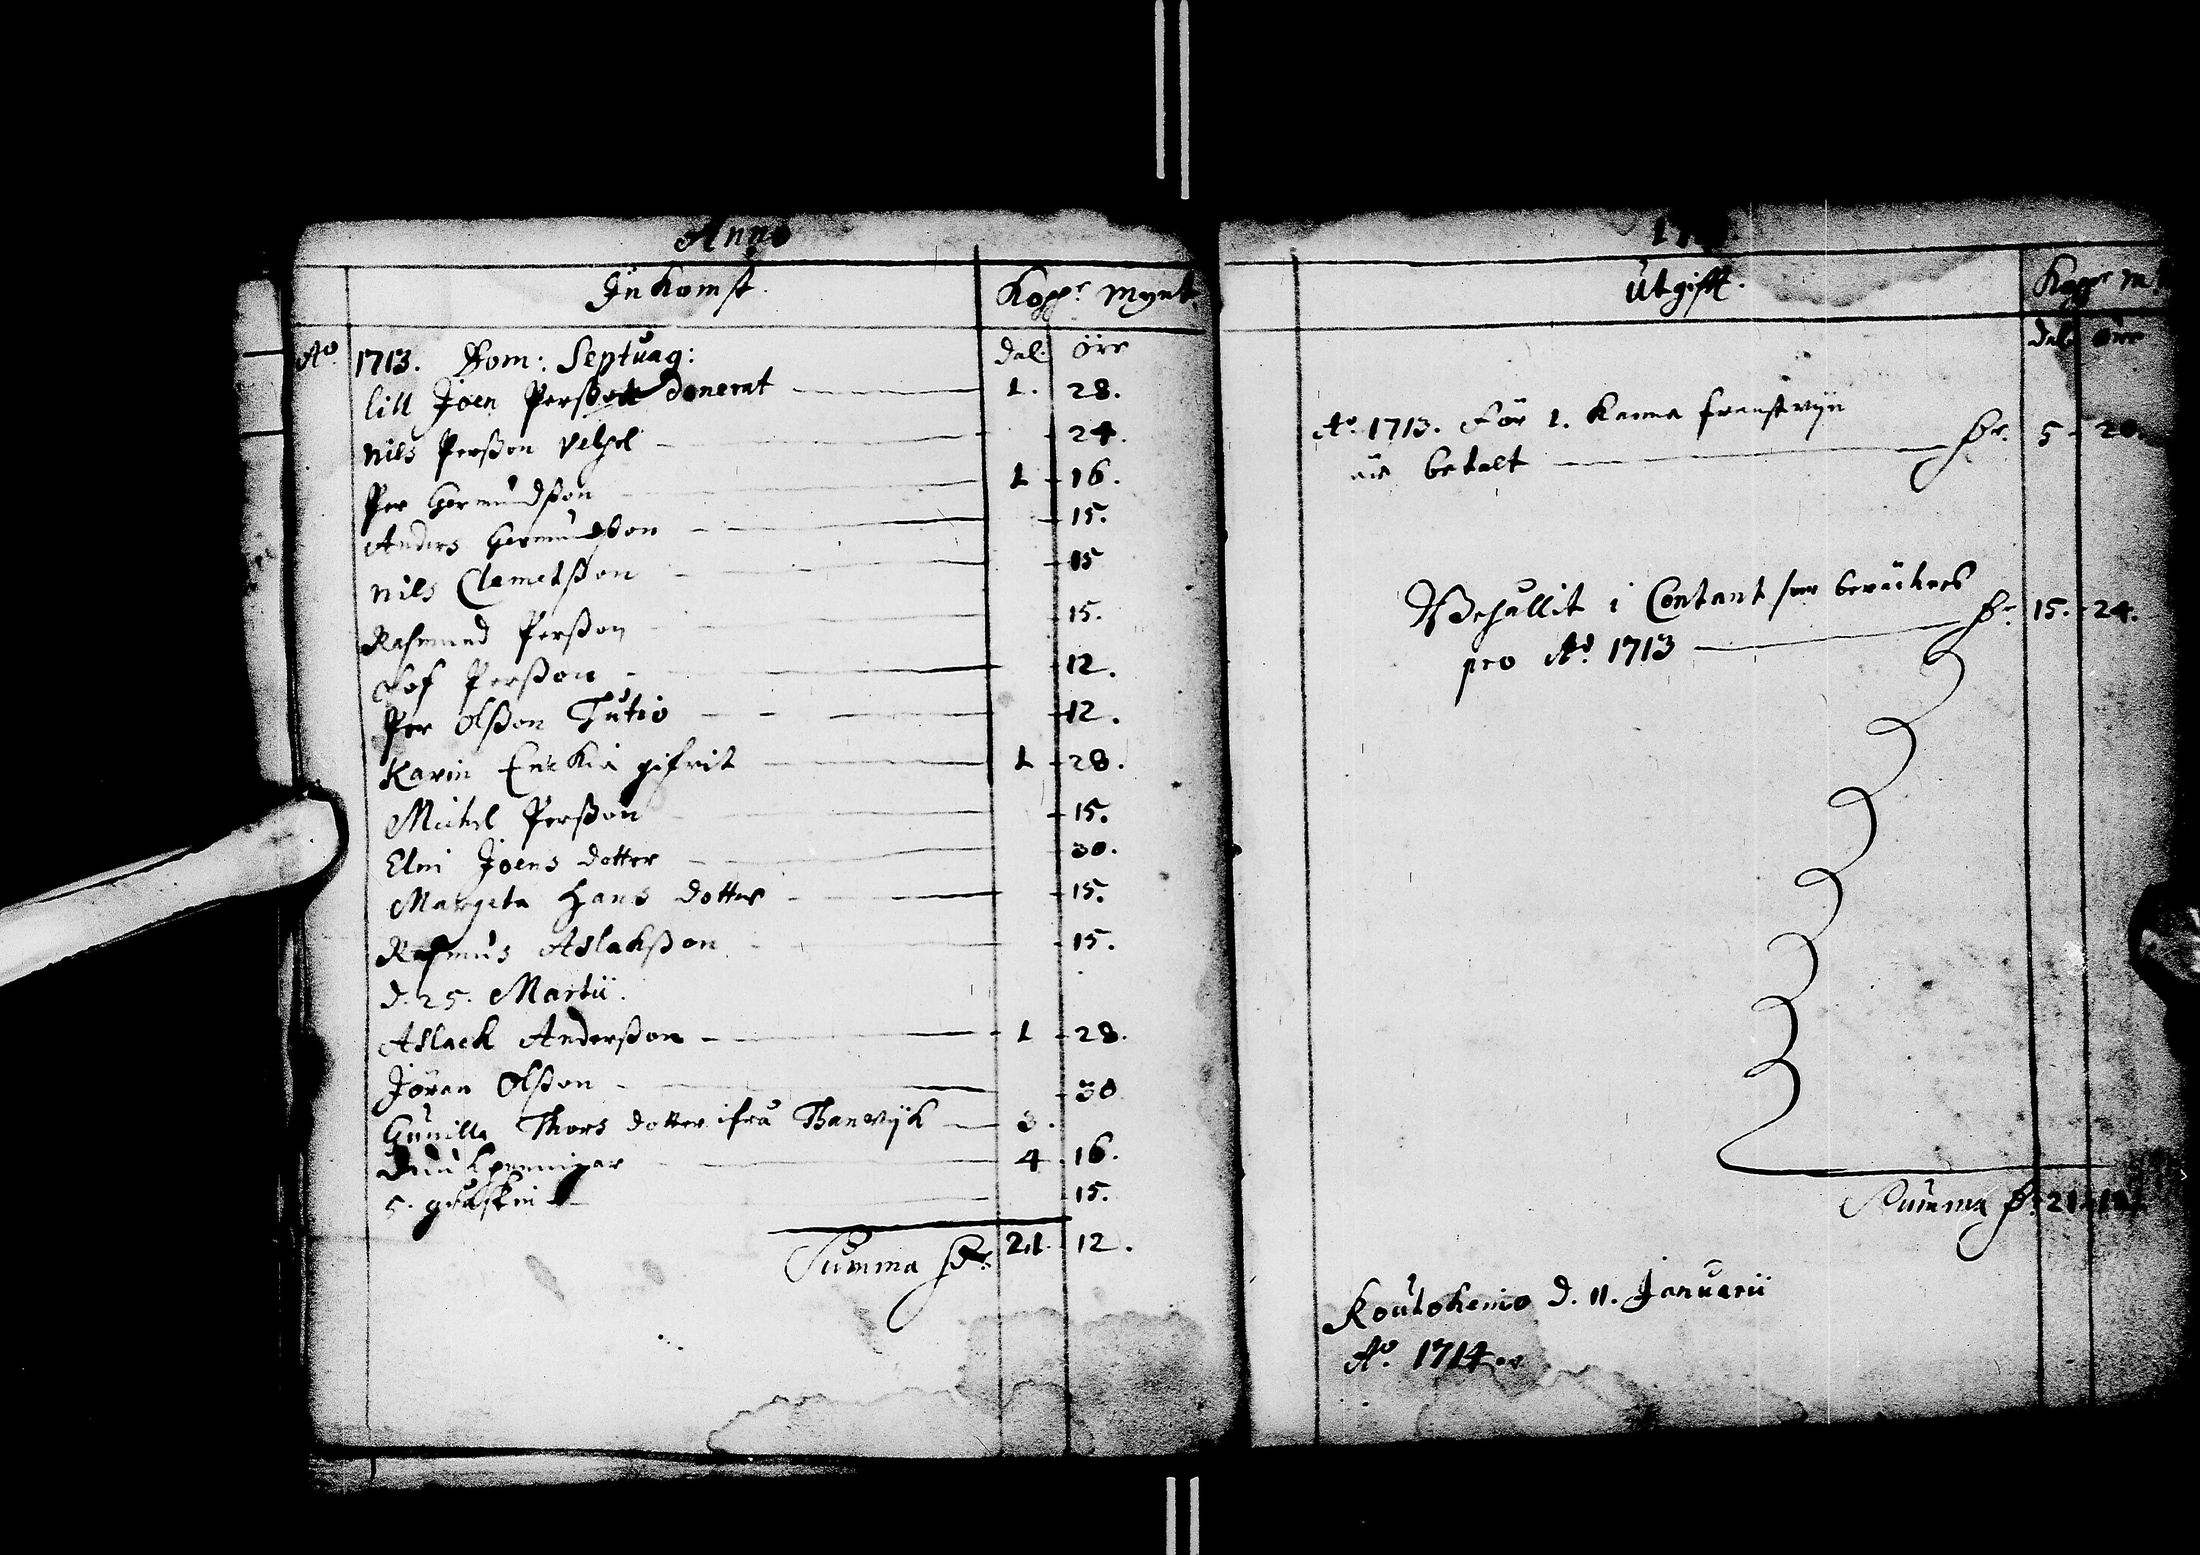 Anno
Inkomst. Kopp.r Mynt
A.o 1713. Dom: Septuag: dal. örr
lill Joen Perßon donerat 1. 28.
Nils Perßon 24.
Per Germundßon 1 16.
Anders Germundßon 15.
Nils Clemetßon 15
Rasmund Perßon 15.
Olof Perßon 12.
Per Olßon Tutio 12.
Karin Enckia gifvit 1 28.
Michel Perßon 15.
Elni Joens dotter 30.
Margeta Hans dotter 15.
Rasmus Aslakßon 15.
d. 25. Martii.
Aslack Anderßon 1 28.
Jöran Olßon 30
Gunilla Thors dotter ifrå 3.
4 16.
5. gråskin 15.
Summa 21. 12.
Utgifft. Kopp.r
dal. örr
A.o 1713. För 1. Kanna franskt vijn
är betalt 5 20.
Behållit i Contant som beräcknes
pro A.o 1713 15. 24.
Summa 21 12
Koutokeino d. 11. Januarii
A.o 1714